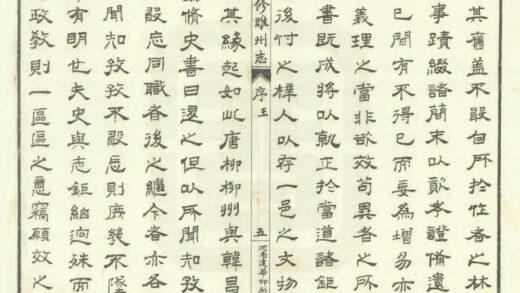 其舊蓋不敢自附於作者之林
事蹟綴諸簡末以考證備遺
已間有不得已而妄為增易亦
義理之當非欲效苟異者之所
書既成將以就正於當道諸鉅
後付之梓人以存一邑之文物
修睢州志 序 五 河南建華印刷
其緣起如此唐柳柳州與韓昌
論脩史書曰退之但以所聞知孜
敢怠同職者後之繼今者亦各
聞知孜孜不敢怠則庶幾不墜
有明也夫史與志鉅細迥殊而
政教則一區區之意竊願效之